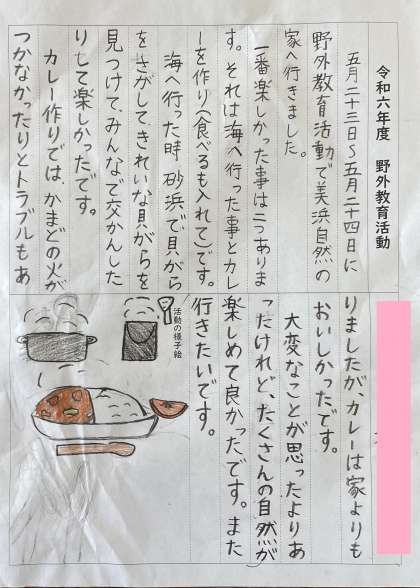 令和六年度　野外教育活動
五月二十三日～五月二十四日に
野外教育活動で美浜自然の
家へ行きました。
一番楽しかった事は二つありま
す。それは海へ行った事とカレ
ーを作り(食べるも入れて)です。
海へ行った時、砂浜で貝がら
をさがして、きれいな貝がらを
見つけて、みんなで交かんした
りして楽しかったです。
カレー作りでは、かまどの火が
つかなかったりとトラブルもあ
りましたが、カレーは家よりも
おいしかったです。
大変なことが思ったよりあ
ったけれど、たくさんの自然が
楽しめて良かったです。また
行きたいです。
活動の様子絵